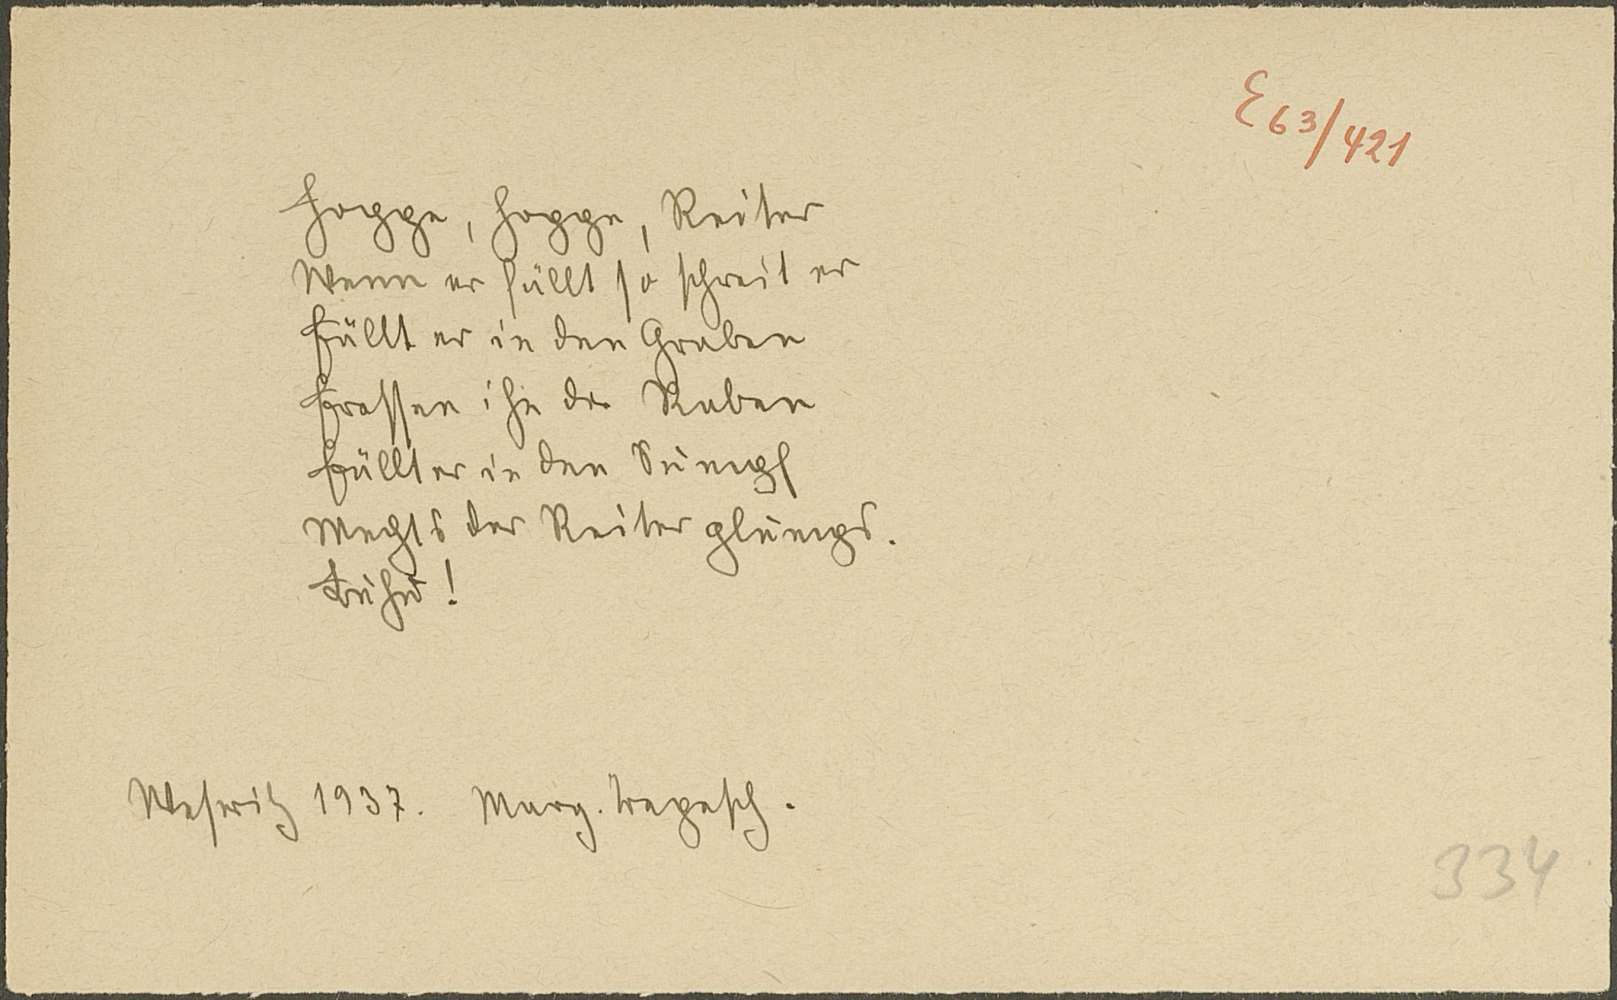 E63/421
Hoppe, hoppe, Reiter
Wenn er fällt so schreit er
Fällt er in den Graben
Fressen ihn die Raben
Fällt er in den Sumpf
Mechts der Reiter plumps.
Weseritz 1937. Marg.
334